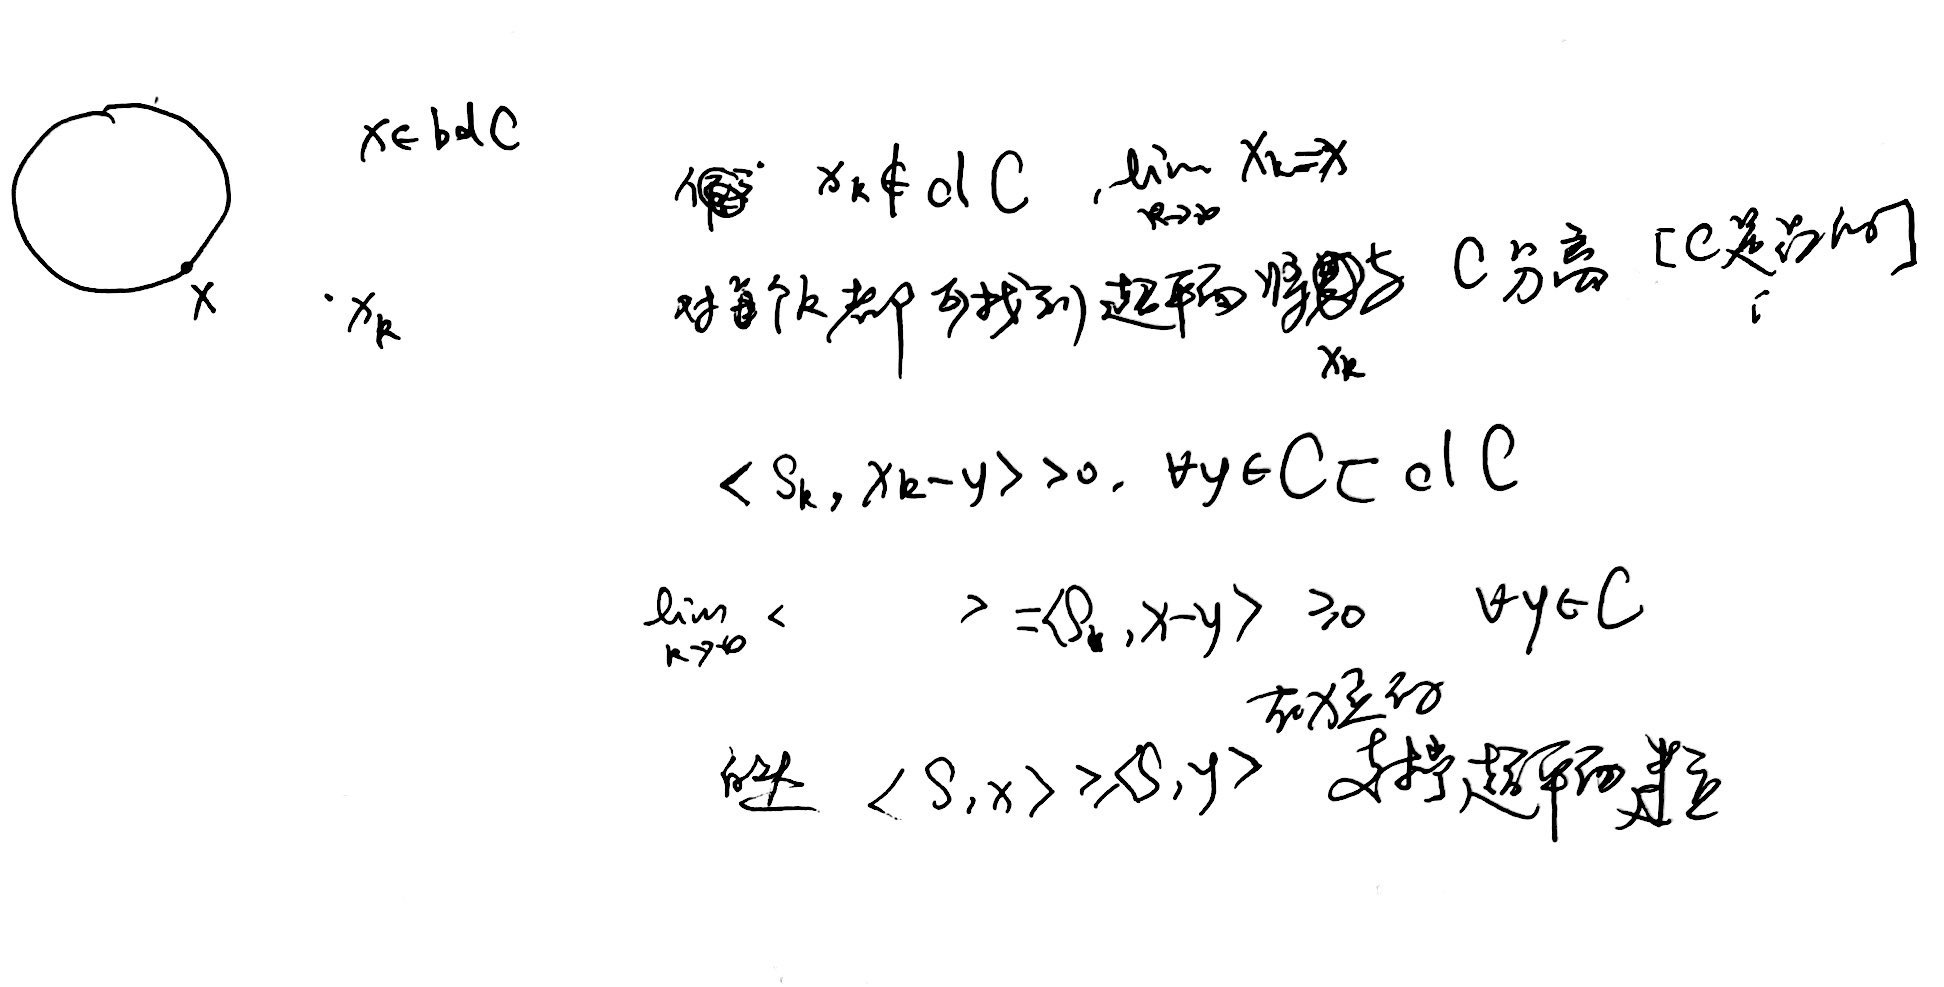 x∈bd C
x_k∉cl C , lim_{k→∞} x_k=x
对每个k都可找到超平面将 x_k 与 C 分离 [C是凸的]
x
x_k
<S_k, x_k-y> >0. ∀y∈C⊂cl C
lim_{k→∞} < > =<S_k, x-y> ≥0 ∀y∈C
在x处的
<S, x> ≥ <S, y> 支撑超平面